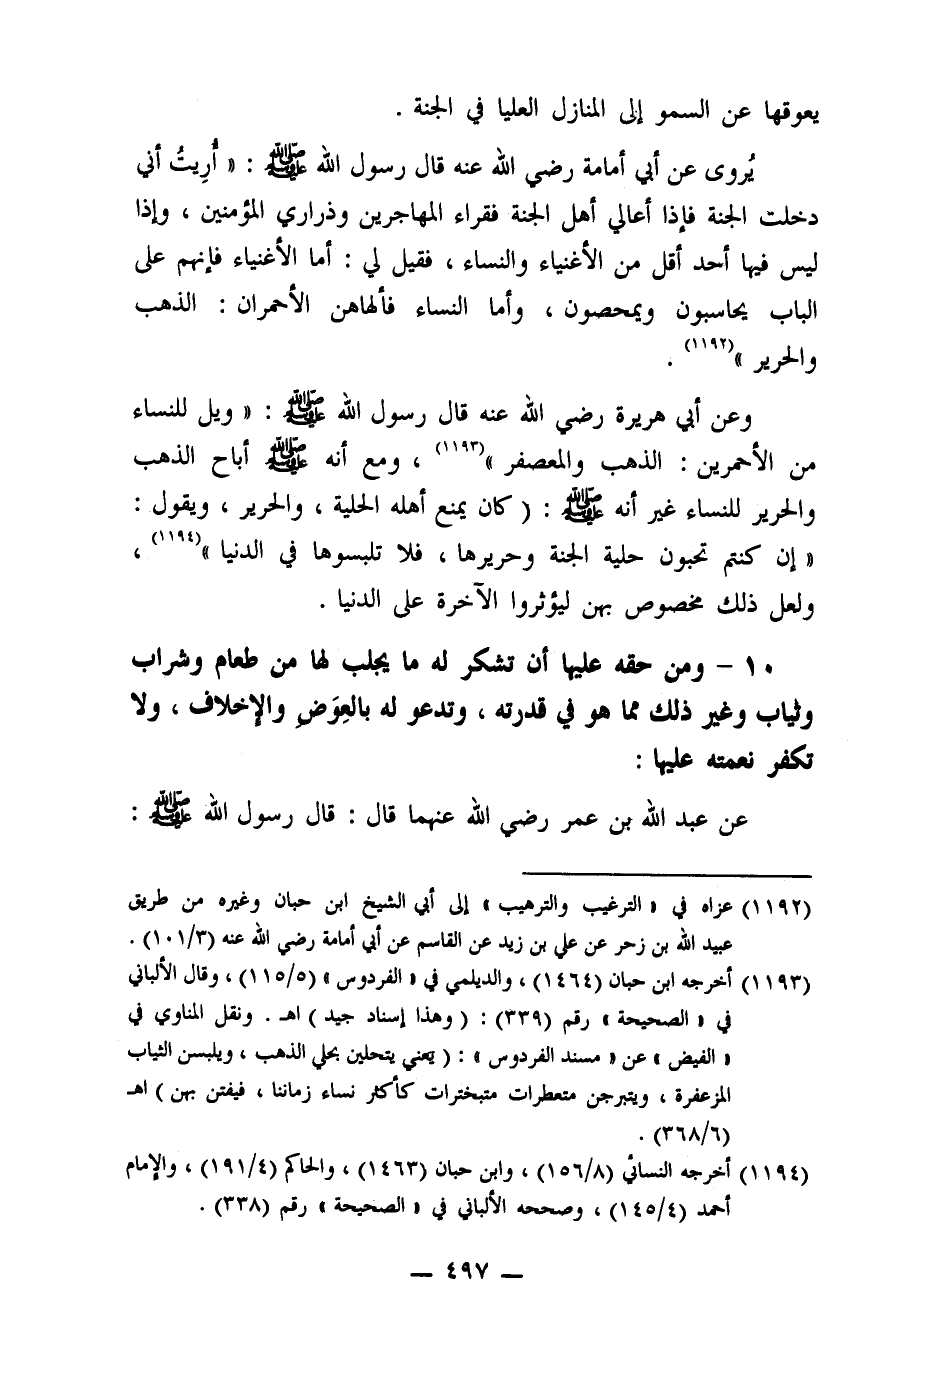 يعوقها عن السمو إلى المنازل العليا في الجنة .
يُروى عن أبي أمامة رضي الله عنه قال رسول الله ﷺ : « أُرِيتُ أني
دخلت الجنة فإذا أعالي أهل الجنة فقراء المهاجرين وذراري المؤمنين ، وإذا
ليس فيها أحد أقل من الأغنياء والنساء ، فقيل لي : أما الأغنياء فإنهم على
الباب يحاسبون ويمحصون ، وأما النساء فألهاهن الأحمران : الذهب
والحرير »(١١٩٢) .
وعن أبي هريرة رضي الله عنه قال رسول الله ﷺ : « ويل للنساء
من الأحمرين : الذهب والمعصفر »(١١٩٣) ، ومع أنه ﷺ أباح الذهب
والحرير للنساء غير أنه ﷺ : ( كان يمنع أهله الحلية ، والحرير ، ويقول :
« إن كنتم تحبون حلية الجنة وحريرها ، فلا تلبسوها في الدنيا »(١١٩٤) ،
ولعل ذلك مخصوص بهن ليؤثروا الآخرة على الدنيا .
١٠ – ومن حقه عليها أن تشكر له ما يجلب لها من طعام وشراب
وثياب وغير ذلك مما هو في قدرته ، وتدعو له بالعِوَضِ والإخلاف ، ولا
تكفر نعمته عليها :
عن عبد الله بن عمر رضي الله عنهما قال : قال رسول الله ﷺ :
(١١٩٢) عزاه في « الترغيب والترهيب » إلى أبي الشيخ ابن حبان وغيره من طريق
عبيد الله بن زحر عن علي بن زيد عن القاسم عن أبي أمامة رضي الله عنه (١٠١/٣) .
(١١٩٣) أخرجه ابن حبان (١٤٦٤) ، والديلمي في « الفردوس » (١١٥/٥) ، وقال الألباني
في « الصحيحة » رقم (٣٣٩) : ( وهذا إسناد جيد ) اهـ . ونقل المناوي في
« الفيض » عن « مسند الفردوس » : ( يَعني يتحلين بحلي الذهب ، ويلبسن الثياب
المزعفرة ، ويتبرجن متعطرات متبخترات كأكثر نساء زماننا ، فيفتن بهن ) اهـ
(٣٦٨/٦) .
(١١٩٤) أخرجه النسائي (١٥٦/٨) ، وابن حبان (١٤٦٣) ، والحاكم (١٩١/٤) ، والإمام
أحمد (١٤٥/٤) ، وصححه الألباني في « الصحيحة » رقم (٣٣٨) .
— ٤٩٧ —